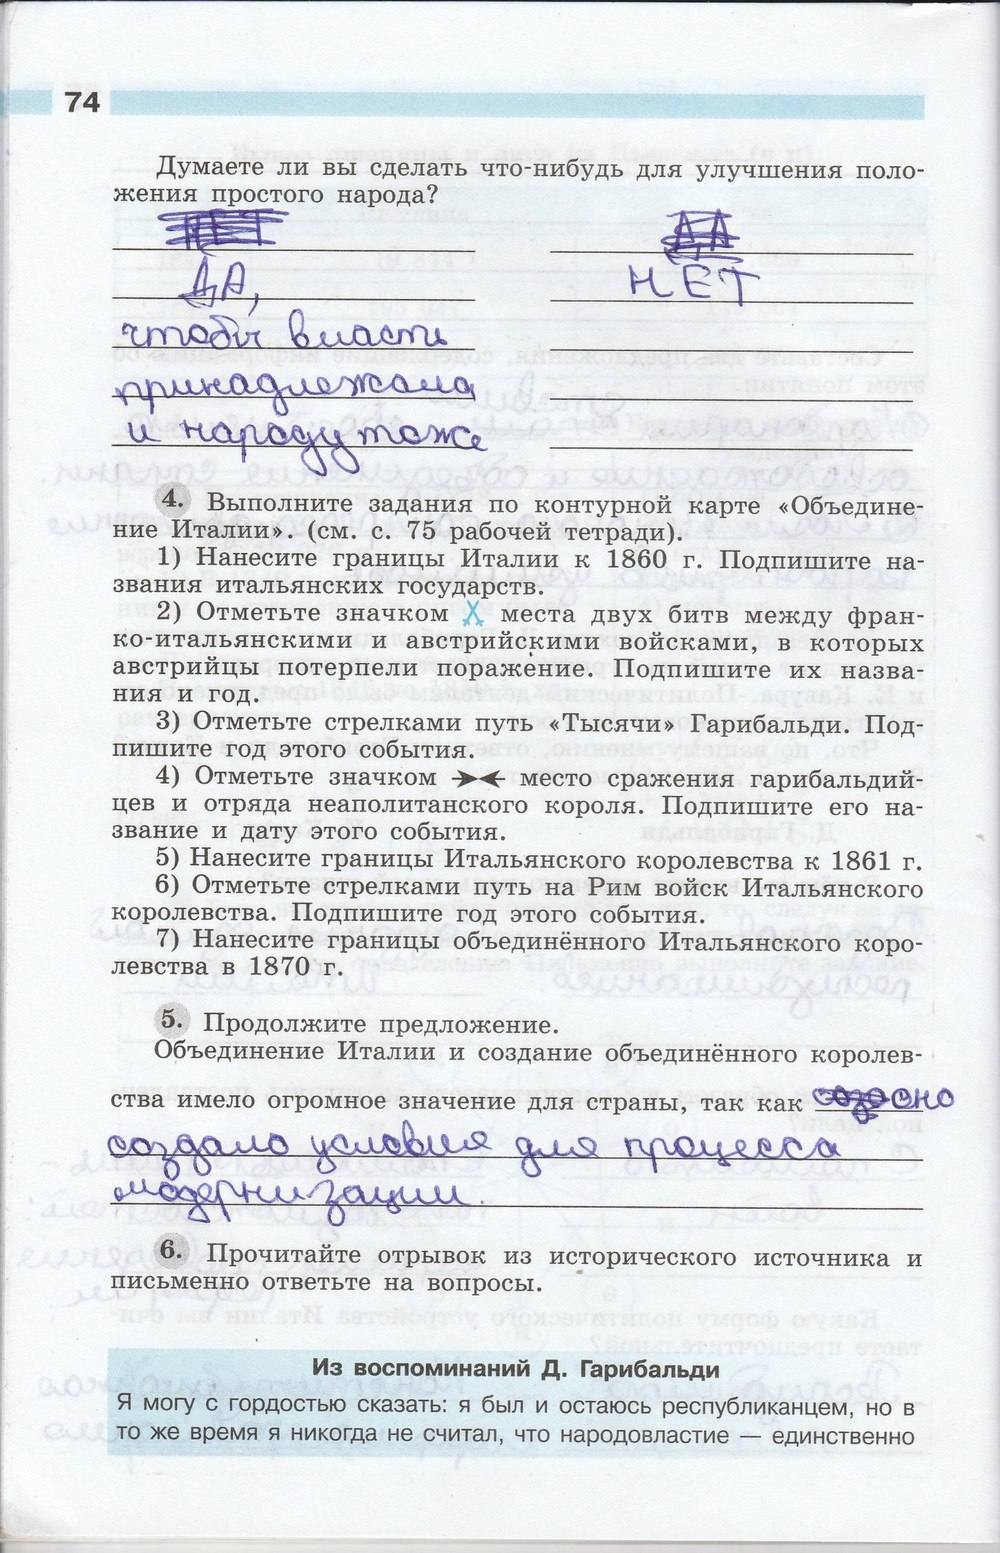 74
Думаете ли вы сделать что-нибудь для улучшения поло-
жения простого народа?
НЕТ ДА
ДА, НЕТ
чтобы власть
принадлежала
и народу тоже
4. Выполните задания по контурной карте «Объедине-
ние Италии». (см. с. 75 рабочей тетради).
1) Нанесите границы Италии к 1860 г. Подпишите на-
звания итальянских государств.
2) Отметьте значком места двух битв между фран-
ко-итальянскими и австрийскими войсками, в которых
австрийцы потерпели поражение. Подпишите их назва-
ния и год.
3) Отметьте стрелками путь «Тысячи» Гарибальди. Под-
пишите год этого события.
4) Отметьте значком место сражения гарибальдий-
цев и отряда неаполитанского короля. Подпишите его на-
звание и дату этого события.
5) Нанесите границы Итальянского королевства к 1861 г.
6) Отметьте стрелками путь на Рим войск Итальянского
королевства. Подпишите год этого события.
7) Нанесите границы объединённого Итальянского коро-
левства в 1870 г.
5. Продолжите предложение.
Объединение Италии и создание объединённого королев-
ства имело огромное значение для страны, так как оно
создало условия для процесса
модернизации.
6. Прочитайте отрывок из исторического источника и
письменно ответьте на вопросы.
Из воспоминаний Д. Гарибальди
Я могу с гордостью сказать: я был и остаюсь республиканцем, но в
то же время я никогда не считал, что народовластие — единственно